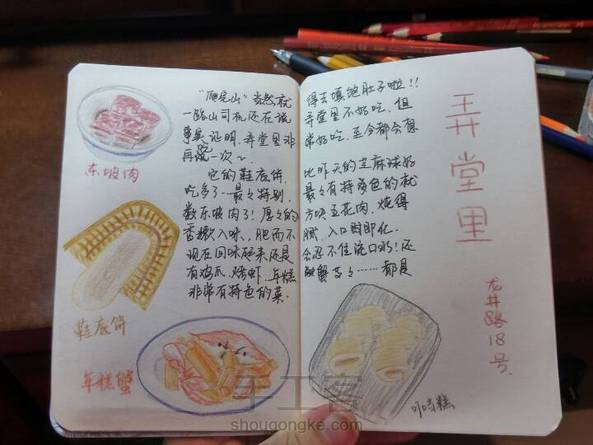 东坡肉
鞋底饼
年糕蟹
山"当然就 得去填饱肚子啦!!
一路山司机还在说 弄堂里不好吃,但
事实证明,弄堂里非 常好吃,至今都会想
再吃一次~
它的鞋底饼, 比昨天的芝麻球好
吃多了…最特别, 最有特色的就
数东坡肉了!厚々的 方块五花肉,炖得
香嫩入味,肥而不 腻,入口即化.
现在回味起来还是 会忍不住流口水!还
有鸡爪、烤虾、年糕 蟹等々……都是
非常有特色的菜.
弄堂里
龙井路18号.
叮当糕
手工客
shougongke.com